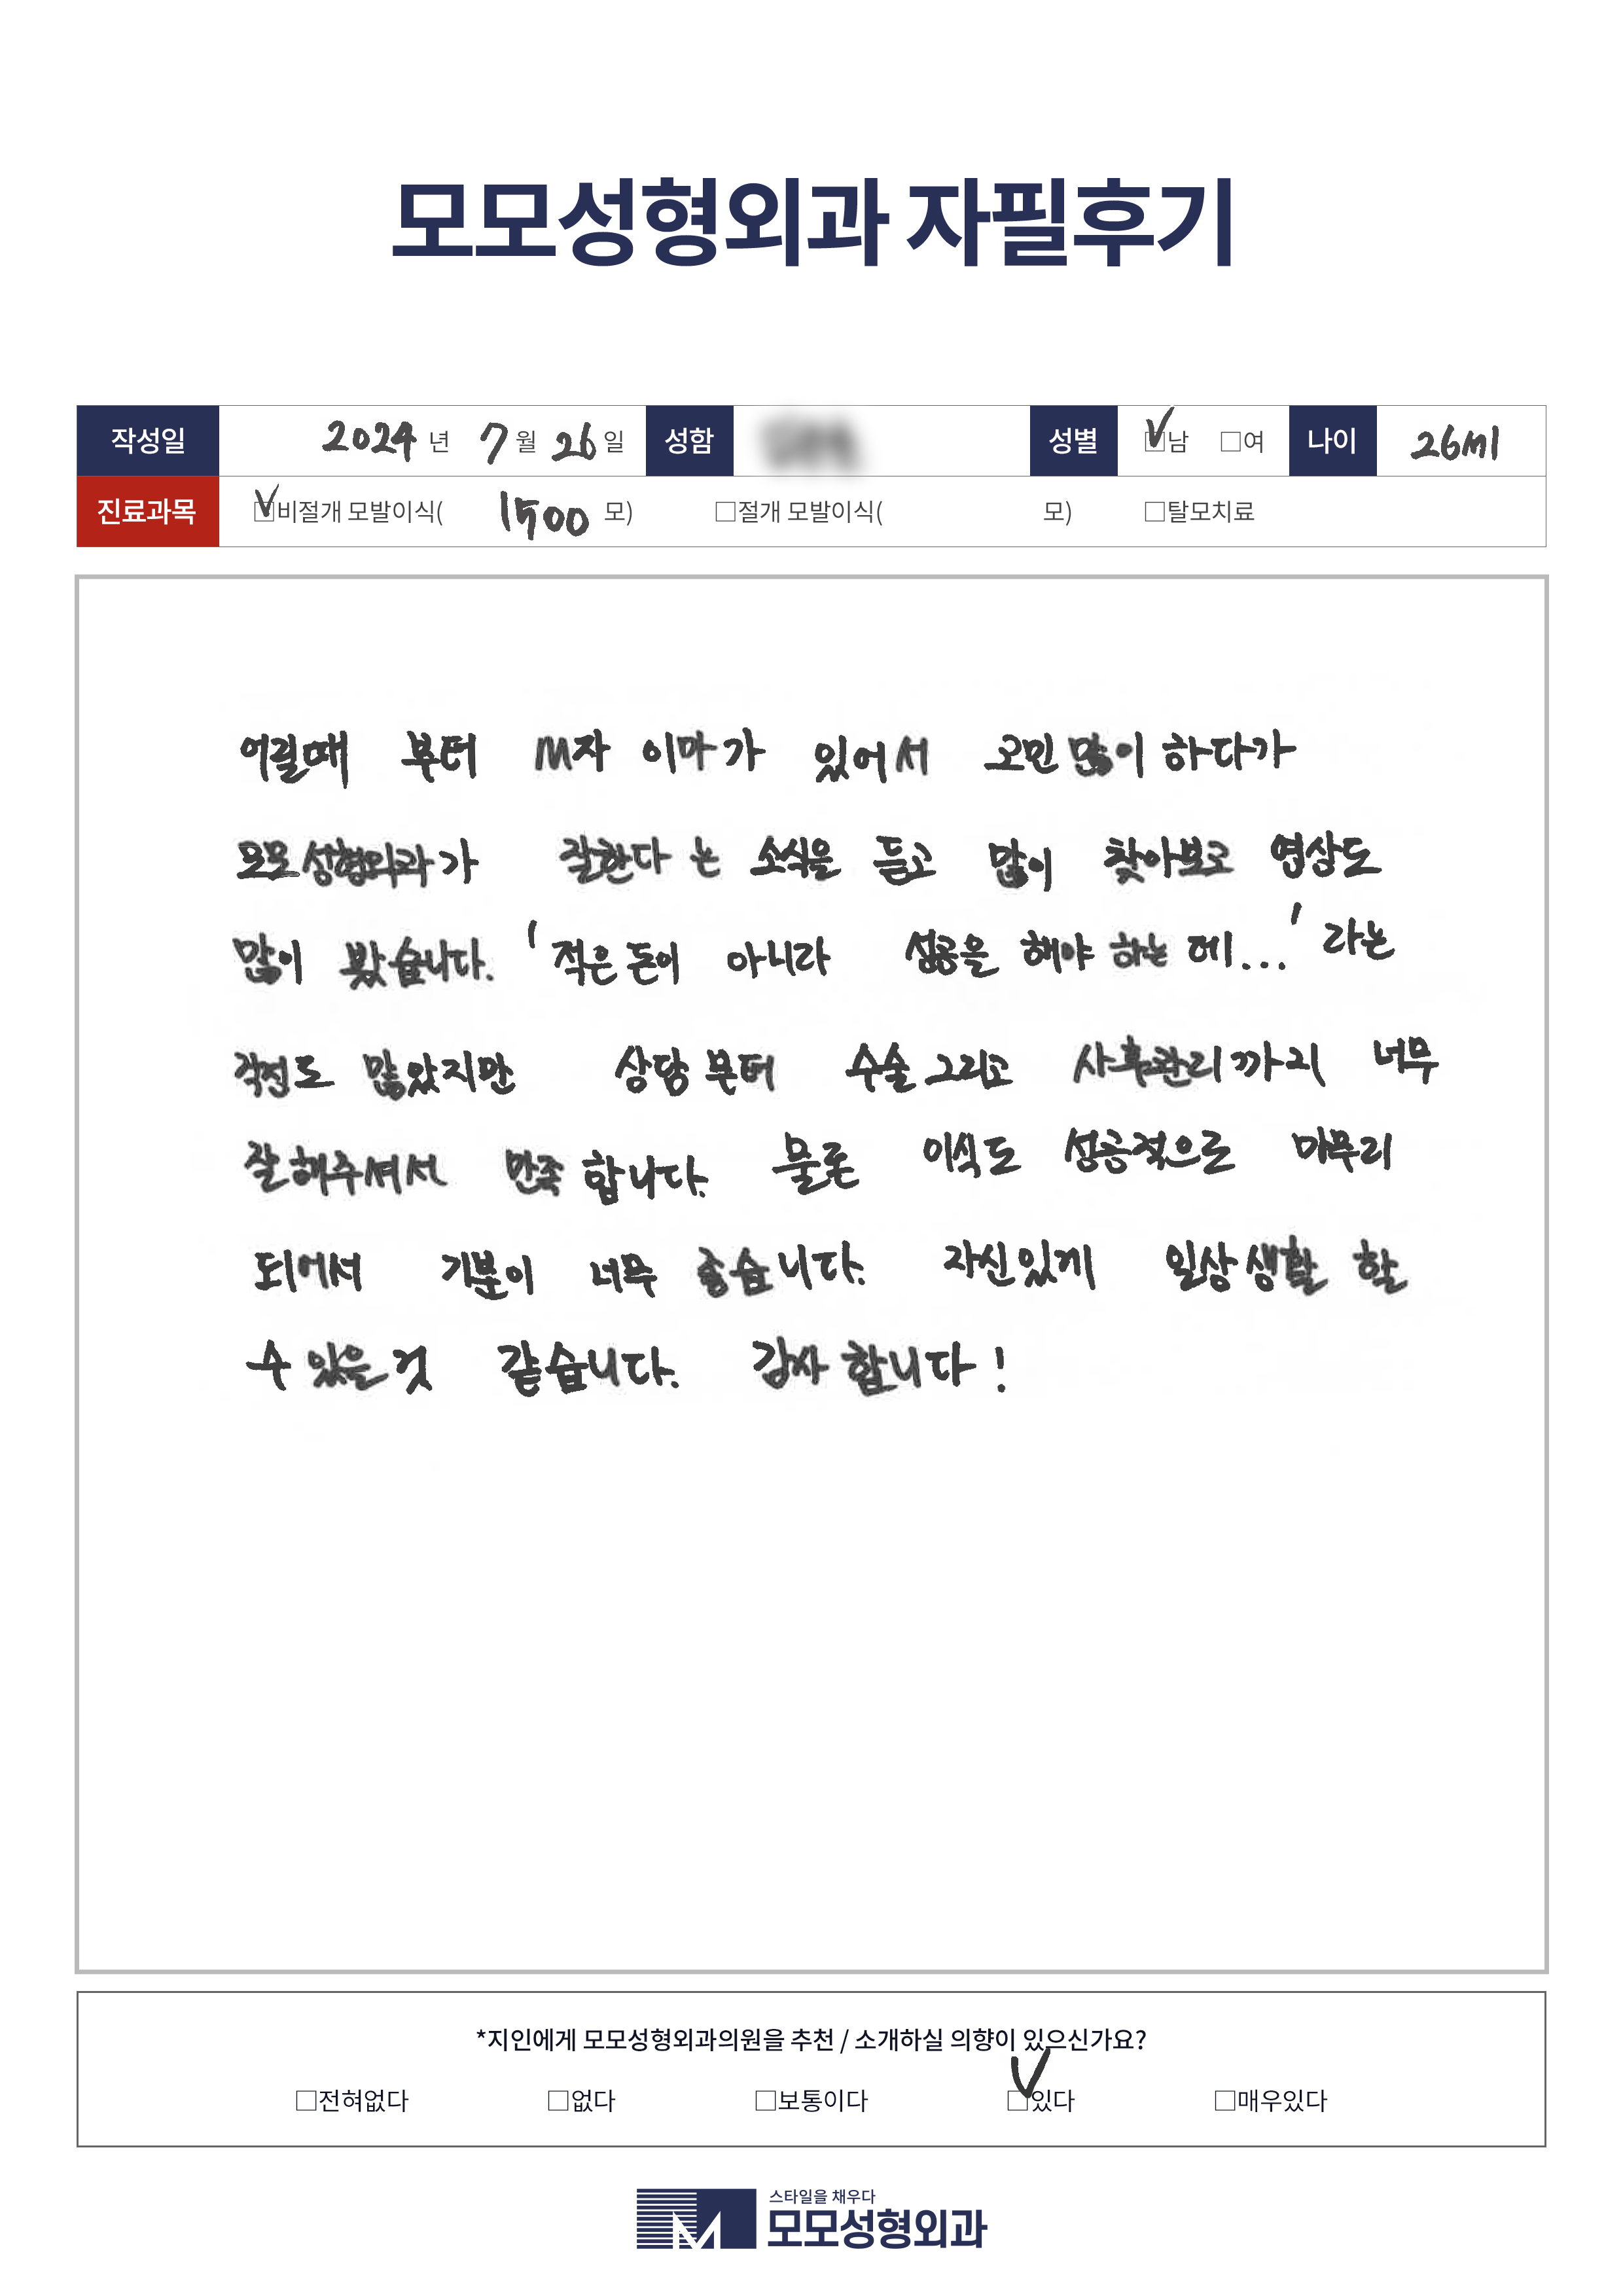 모모성형외과 자필후기
작성일 2024 년 7 월 26 일 성함 성별 ☑남 □여 나이 26세
진료과목 ☑비절개 모발이식( 1500 모) □절개 모발이식( 모) □탈모치료
어릴때 부터 M자 이마가 있어서 고민 많이 하다가
모모성형외과가 잘한다는 소식을 듣고 많이 찾아보고 영상도
많이 봤습니다. '적은 돈이 아니라 성공을 해야 하는데...' 라는
걱정도 많았지만 상담부터 수술 그리고 사후관리까지 너무
잘해주셔서 만족합니다. 물론 이식도 성공적으로 마무리
되어서 기분이 너무 좋습니다. 자신있게 일상생활 할
수 있을것 같습니다. 감사합니다!
*지인에게 모모성형외과의원을 추천 / 소개하실 의향이 있으신가요?
□전혀없다 □없다 □보통이다 ☑있다 □매우있다
스타일을 채우다
모모성형외과